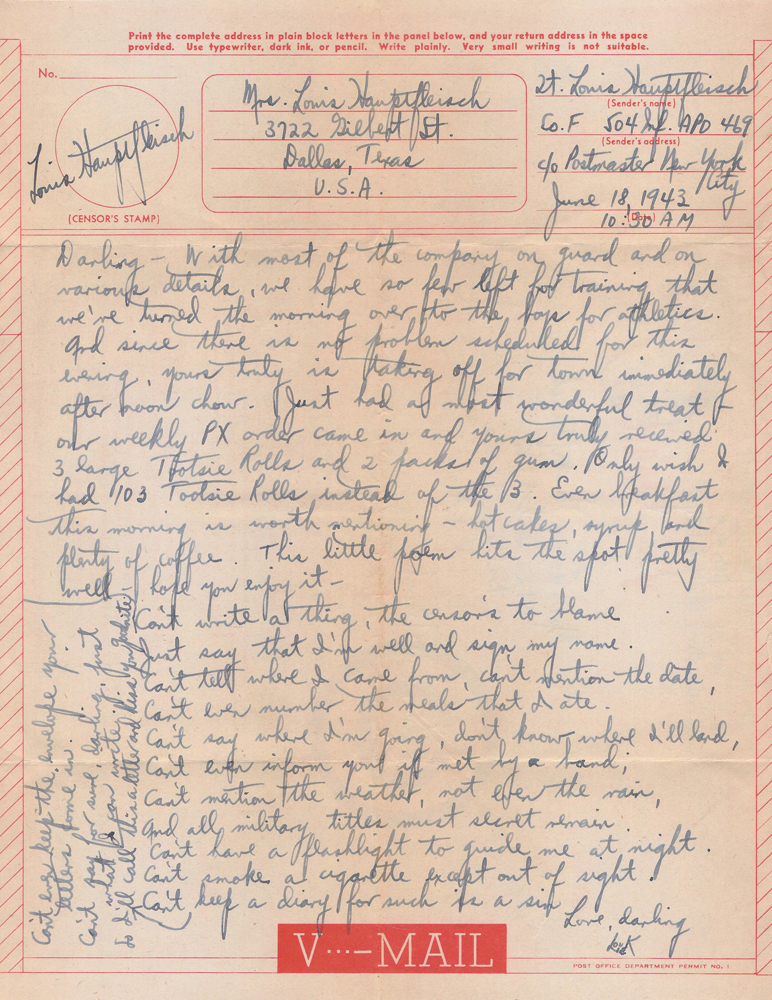 Print the complete address in plain block letters in the panel below, and your return address in the space
provided. Use typewriter, dark ink, or pencil. Write plainly. Very small writing is not suitable.
No.
Louis Hauptfleisch
(CENSOR'S STAMP)
Mrs. Louis Hauptfleisch
3722 Gilbert St.
Dallas, Texas
U.S.A.
Lt. Louis Hauptfleisch
(Sender's name)
Co. F 504 Inf. APO 469
(Sender's address)
c/o Postmaster New York
City
June 18, 1943
(Date)
10:30 AM
Darling - With most of the company on guard and on
various details, we have so few left for training that
we've turned the morning over to the boys for athletics.
And since there is no problem scheduled for this
evening, yours truly is taking off for town immediately
after noon chow. Just had a most wonderful treat -
our weekly PX order came in and yours truly received
3 large Tootsie Rolls and 2 packs of gum. Only wish I
had 103 Tootsie Rolls instead of the 3. Even breakfast
this morning is worth mentioning - hot cakes, syrup and
plenty of coffee. This little poem hits the spot pretty
well. I hope you enjoy it -
Can't write a thing, the censor's to blame
Just say that I'm well and sign my name.
Can't tell where I came from, can't mention the date,
Can't even number the meals that I ate.
Can't say where I'm going, don't know where I'll land,
Can't even inform you if met by a band,
Can't mention the weather, not even the rain,
And all military titles must secret remain.
Can't have a flashlight to guide me at night.
Can't smoke a cigarette except out of sight.
Can't keep a diary for such is a sin
Can't even keep the envelope your
letters come in.
Can't say for sure, darling, just
what I can write
So I'll call this a letter and kiss you goodnite!
Love, darling
V···—MAIL
POST OFFICE DEPARTMENT PERMIT NO. 1